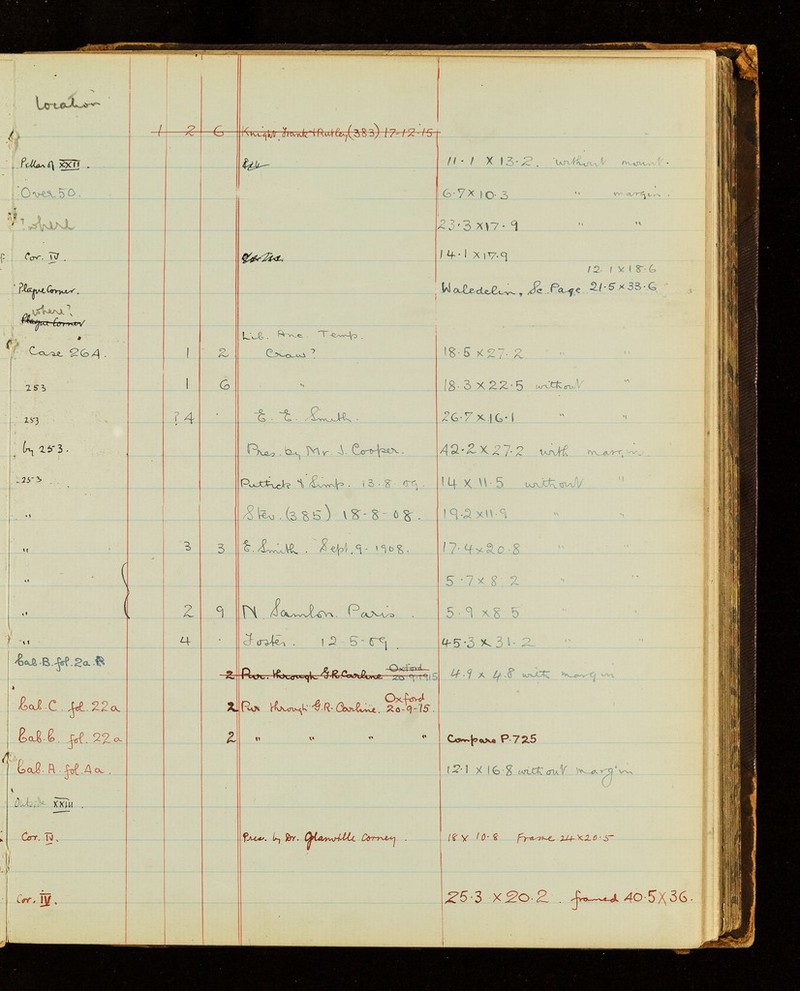 Location
1 2 6 Knight Frank & Rutley (383) 17-12-15
Pillar of XXII . 11.1 X 13.2. without mount.
Over 50. 6.7 X 10.3 " margin.
? where 23.3 X 17.9 " "
Cor. IV . 14.1 X 17.9
12.1 X 18.6
Plague Corner. Waledelin, Sc. Page 21.5 x 33.6
where?
Plague Corner
Lib. Temp.
Case 264. 1 2 Craw? 18.5 X 27.2 " "
253 1 6 " 18.3 X 22.5 without "
253 ? 4 . E. E. Smith. 26.7 X 16.1 " "
by 253. Pres. by Mr J. Cooper. 42.2 X 27.2 with margin
253 Puttick & Simp. 13.8.09. 14 X 11.5 without "
" Stev. (385) 18-8-08. 19.2 X 11.9 " "
" 3 3 E. Smith. Sept. 9. 1908. 17.4 x 20.8 " "
" 5.7 x 8.2 " "
" 2 9 N. Paris 5.9 x 8.5 " "
" 4 . Foster. 12.5.09. 45.3 X 31.2 " "
Cab. B. fol. 2a. 2 Pur. through G.R. Carline Oxford 20.9.1915 4.9 x 4.8 with margin
Cab. C. fol. 22a 2 Pur. through G.R. Carline. Oxford 20-9-15.
Cab. C. fol. 22a 2 " " " " Compare P.725
Cab. A. fol. 4a. 12.1 X 16.8 without margin
Outside XXIII .
Cor. IV. Pres. by Dr. Glanville Corney . 18 X 10.8 Frame 24 X 20.5
Cor. IV. 25.3 X 20.2 . framed 40.5 X 36.